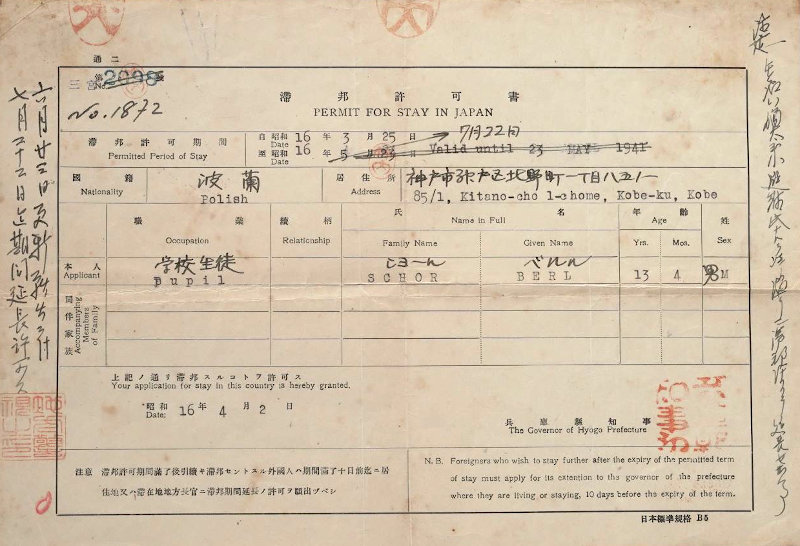 通二
三宮 第 2098 号
No. 1872
滞邦許可書
PERMIT FOR STAY IN JAPAN
滞邦許可期間
Permitted Period of Stay
自 昭和 Date 16 年 3 月 25 日
至 昭和 Date 16 年 5 月 23 日 Valid until 23 MAY 1941
7月22日
國籍
Nationality
波蘭
Polish
居住所
Address
神戸市 北野町一丁目八五ノ一
85/1, Kitano-cho 1-chome, Kobe-ku, Kobe
職業
Occupation
續柄
Relationship
氏名
Name in Full
Family Name
Given Name
年齢
Age
Yrs.
Mos.
姓
Sex
本人
Applicant
学校生徒
Pupil
ショール
SCHOR
ベルル
BERL
13
4
男M
同伴家族
Accompanying Members of Family
上記ノ通リ滞邦スルコトヲ許可ス
Your application for stay in this country is hereby granted.
昭和 Date: 16 年 4 月 2 日
兵庫縣知事
The Governor of Hyogo Prefecture
注意 滞邦許可期間滿了後引續キ滞邦セントスル外國人ハ期間滿了十日前迄ニ居
住地又ハ滞在地地方長官ニ滞邦期間延長ノ許可ヲ願出ヅベシ
N. B. Foreigners who wish to stay further after the expiry of the permitted term
of stay must apply for its extention to the governor of the prefecture
where they are living or staying, 10 days before the expiry of the term.
日本標準規格 B5
七月二十二日迄期間延長許可ス